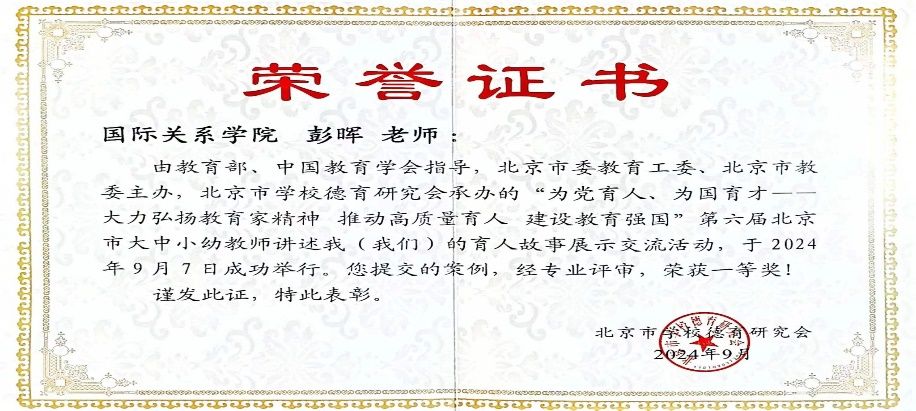 荣誉证书
国际关系学院 彭晖 老师：
由教育部、中国教育学会指导，北京市委教育工委、北京市教
委主办，北京市学校德育研究会承办的“为党育人、为国育才——
大力弘扬教育家精神 推动高质量育人 建设教育强国”第六届北京
市大中小幼教师讲述我（我们）的育人故事展示交流活动，于2024
年9月7日成功举行。您提交的案例，经专业评审，荣获一等奖！
谨发此证，特此表彰。
北京市学校德育研究会
2024年9月